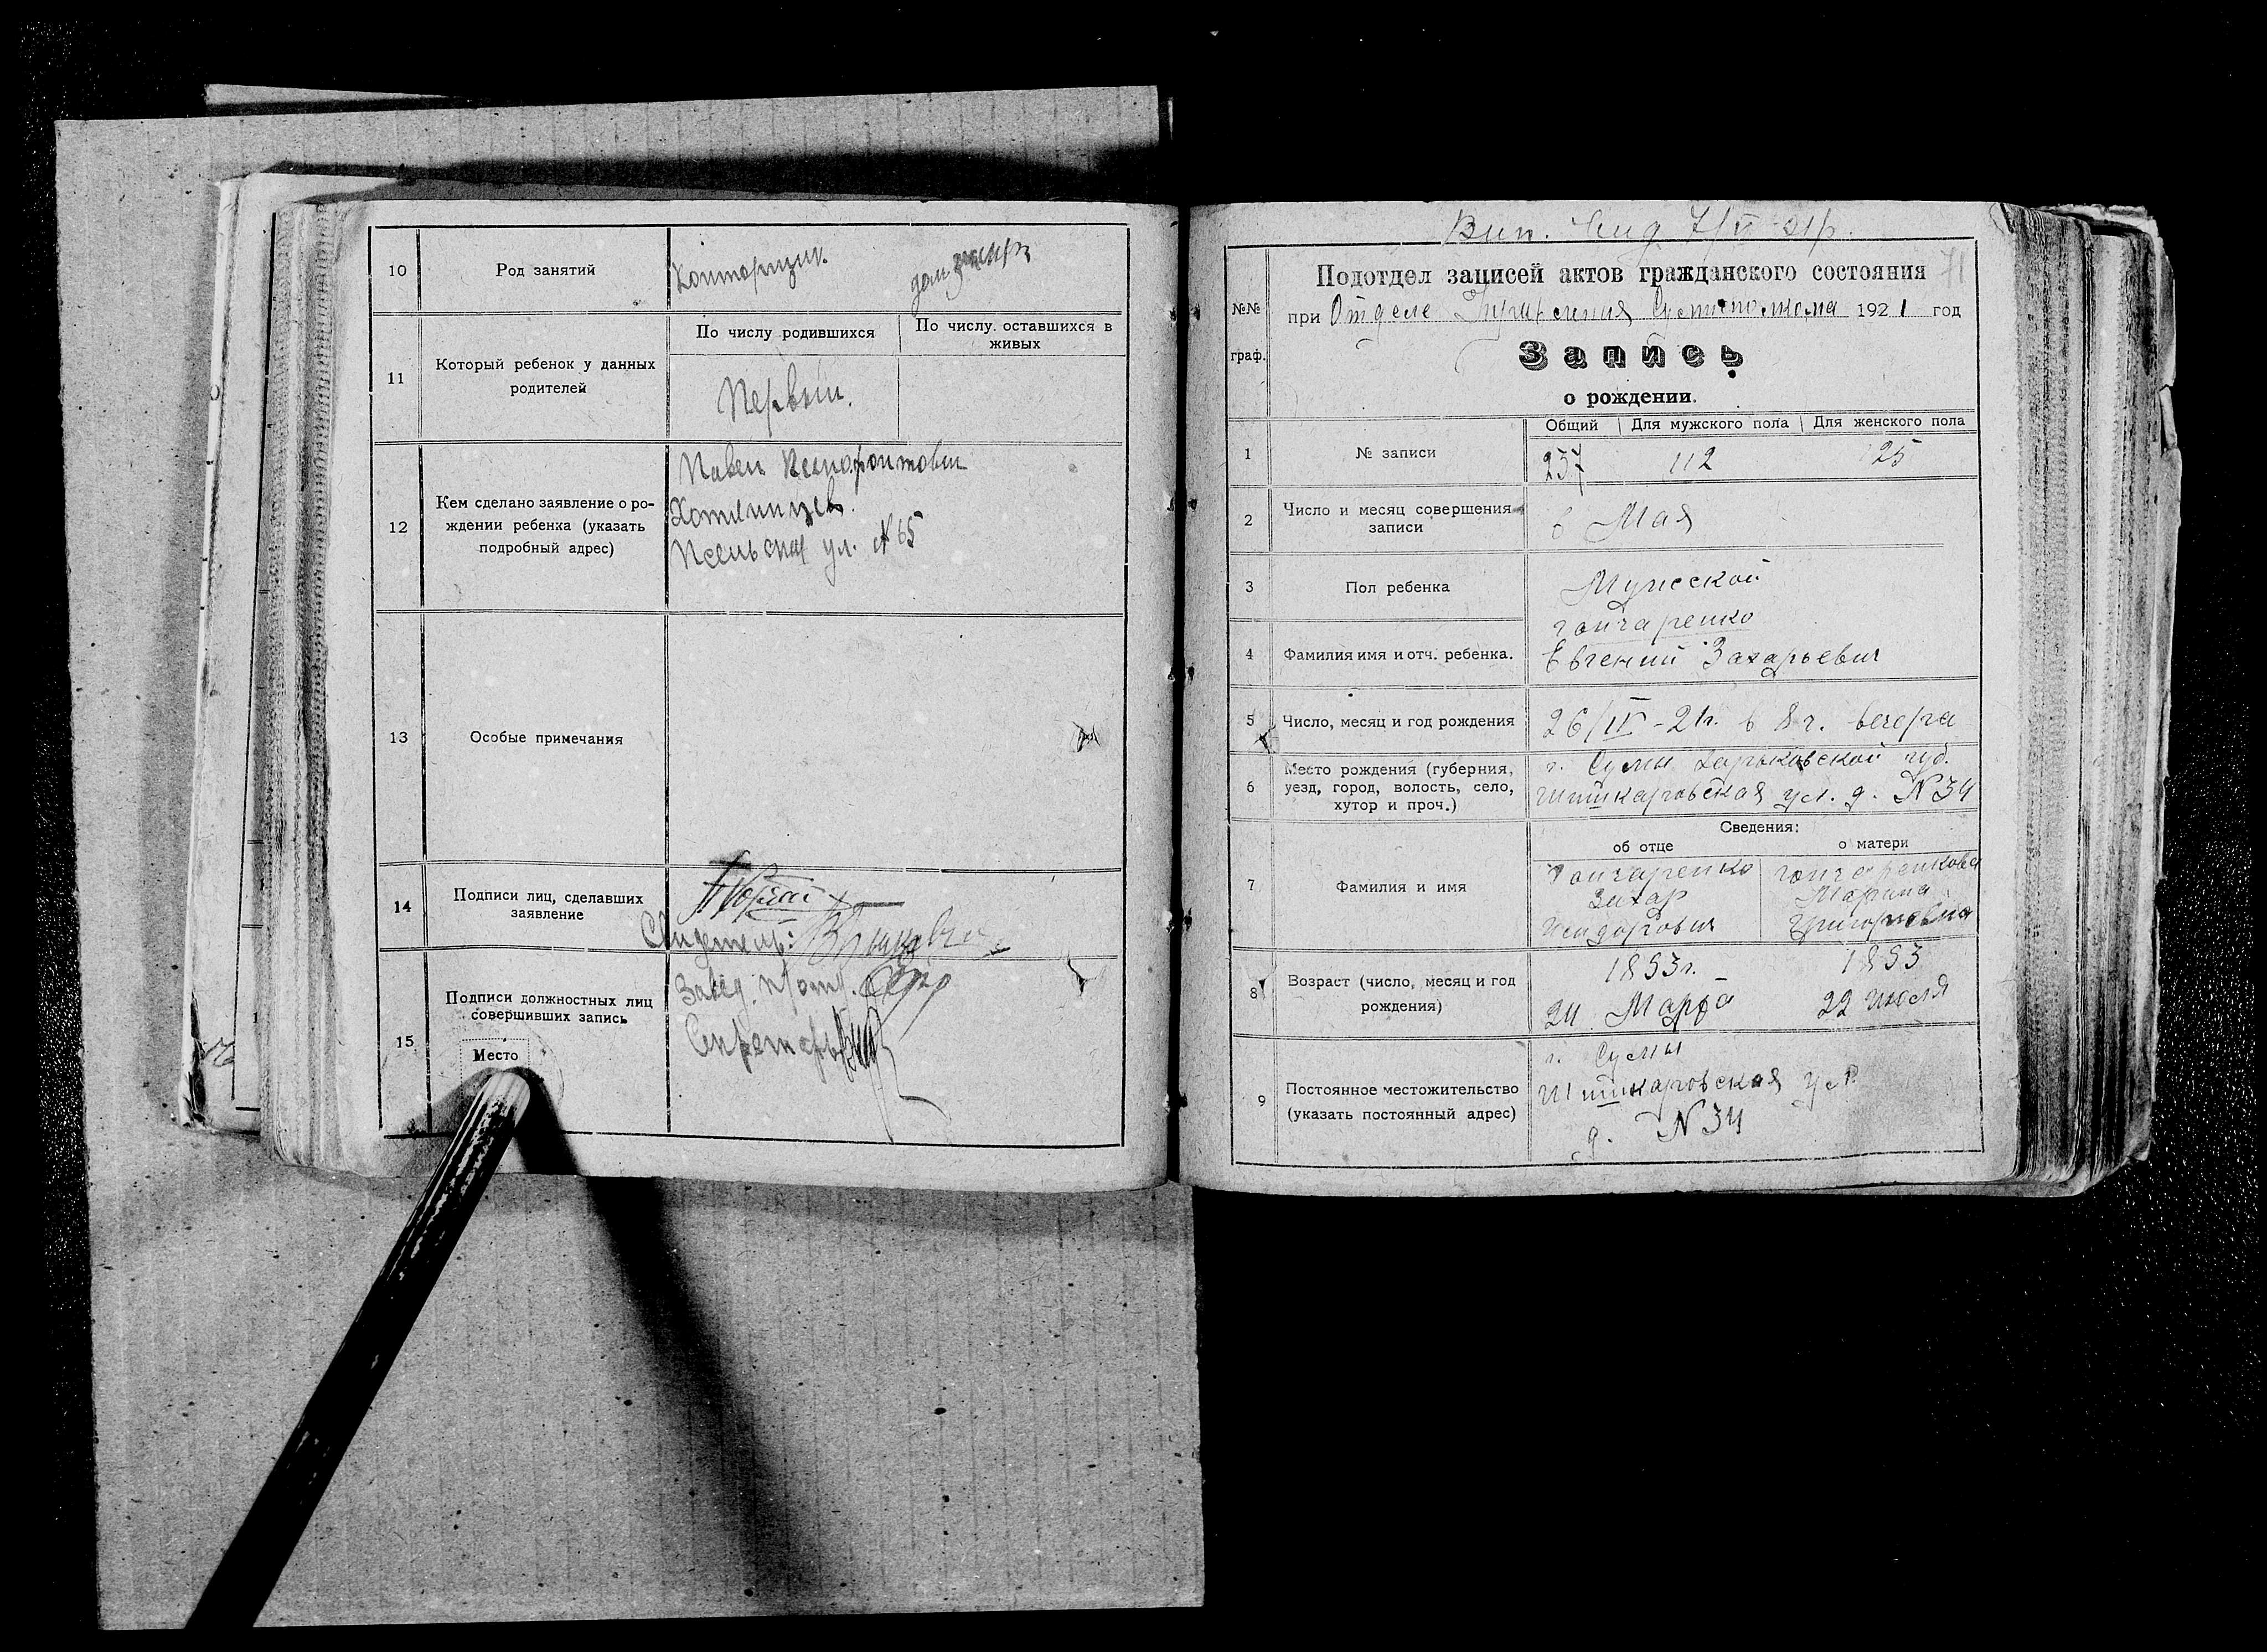 10 Род занятий Конторщик.
11 Который ребенок у данных родителей
По числу родившихся
По числу. оставшихся в живых
Первый.
12 Кем сделано заявление о ро-
ждении ребенка (указать
подробный адрес)
Павел
ул. №65
13 Особые примечания
14 Подписи лиц, сделавших
заявление
Свидетель:
15 Подписи должностных лиц
совершивших запись
Завед. п/отд.
Секретарь
Место
71
Подотдел записей актов гражданского состояния
№№
граф.
при Отделе Управления 1921 год
Запись
о рождении.
Общий Для мужского пола Для женского пола
1 № записи 237 112 125
2 Число и месяц совершения
записи
6 Мая
3 Пол ребенка Мужской
Гончаренко
4 Фамилия имя и отч. ребенка. Евгений Захарьевич
5 Число, месяц и год рождения 26/IV-21г. в 8 ч. вечера
6 Место рождения (губерния,
уезд, город, волость, село,
хутор и проч.)
г. Сумы Харьковской губ.
ул. д. №34
Сведения:
об отце о матери
7 Фамилия и имя
Гончаренко
Захар
Гончаренкова
Марина
Григорьевна
8 Возраст (число, месяц и год
рождения)
1893г.
24 Марта
1893
22 Июля
9 Постоянное местожительство
(указать постоянный адрес)
г. Сумы
ул.
д. №34